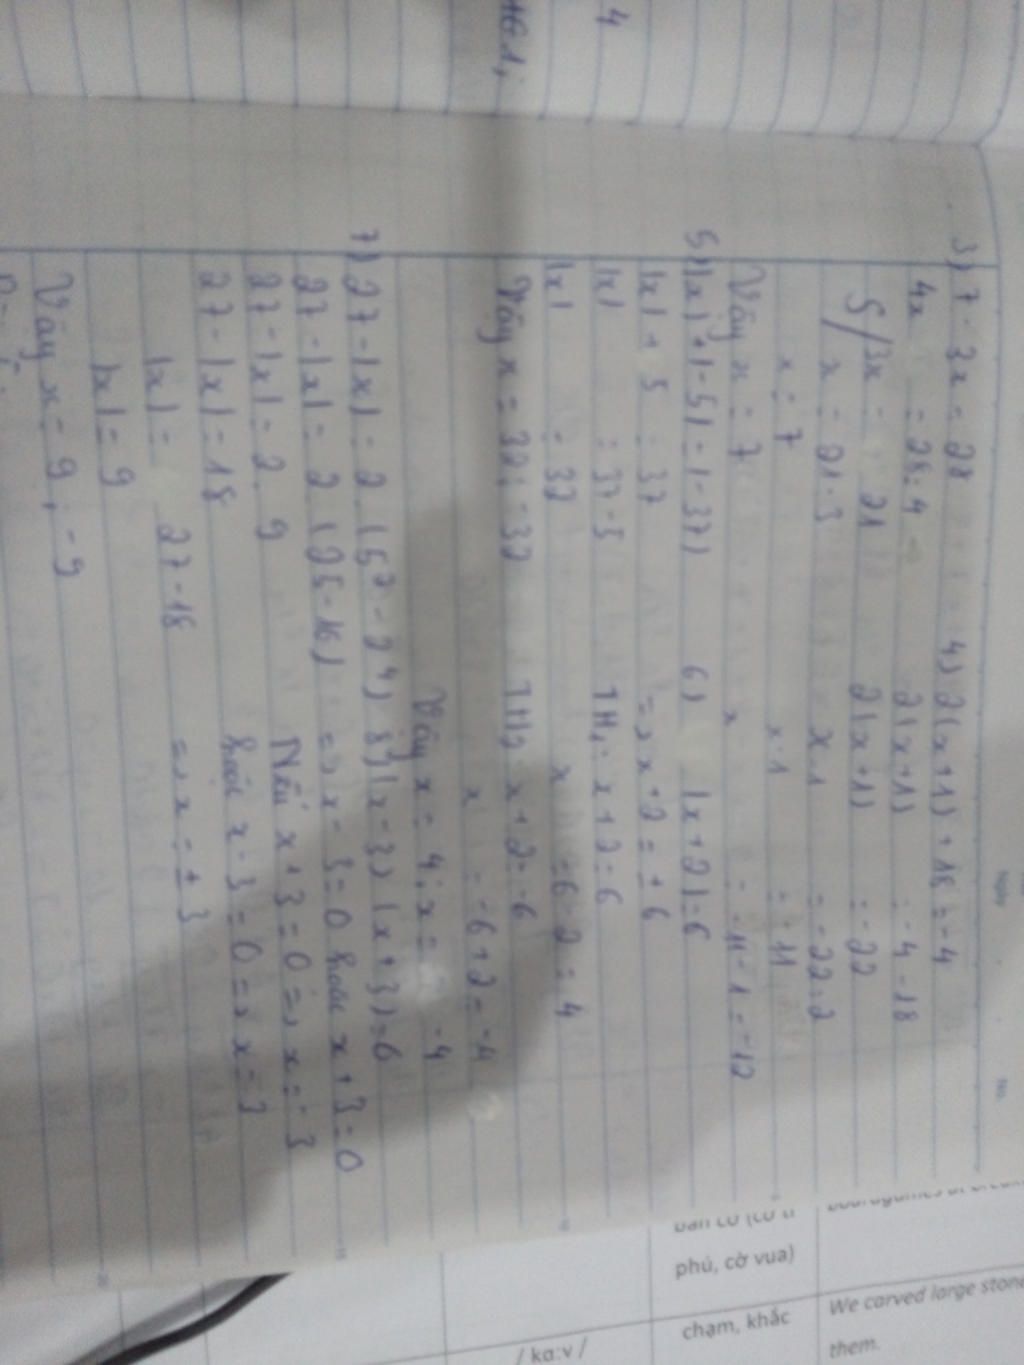 3) 7 - 3x = 28
4x = 28 : 4
S/ 3x = 21
x = 21 : 3
x = 7
Vậy x = 7
4) 2(x+1) + 18 = -4
2(x+1) = -4 - 18
2(x+1) = -22
x + 1 = -22 : 2
x + 1 = -11
x = -11 - 1 = -12
5) |x| + |-5| = |-37|
|x| + 5 = 37
|x| = 37 - 5
|x| = 32
Vậy x = 32; -32
6) |x+2| = 6
=> x + 2 = ± 6
TH1: x + 2 = 6
x = 6 - 2 = 4
TH2: x + 2 = -6
x = -6 + 2 = -4
Vậy x = 4; x = -4
7) 27 - |x| = 2 (5² - 2⁴)
27 - |x| = 2 (25 - 16)
27 - |x| = 2 . 9
27 - |x| = 18
|x| = 27 - 18
|x| = 9
Vậy x = 9; -9
8) (x-3) (x+3) = 6
=> x - 3 = 0 hoặc x + 3 = 0
Nếu x + 3 = 0 => x = -3
hoặc x - 3 = 0 => x = 3
=> x = ± 3
4
161,
Ngày
No.
bàn cờ (cờ tỉ
phú, cờ vua)
chạm, khắc
/ kɑːv /
We carved large stone
them.